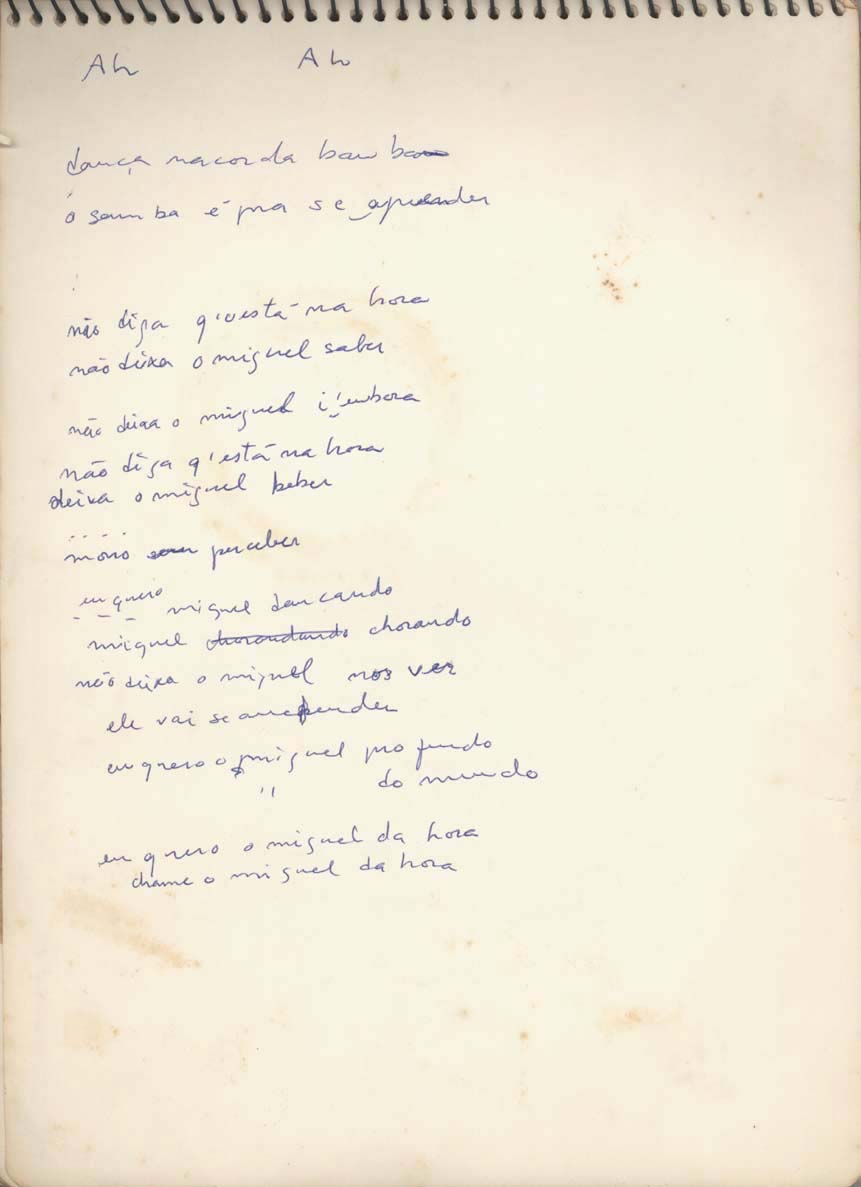 Ah Ah
dança na corda bamba
o samba é pra se aprender
não diga q'está na hora
não deixa o miguel saber
não deixa o miguel i'embora
não diga q'está na hora
deixa o miguel beber
perceber
eu quero miguel dançando
miguel chorando
não deixa o miguel nos ver
ele vai se arrepender
eu quero o miguel pro fundo
" do mundo
eu quero o miguel da hora
chame o miguel da hora